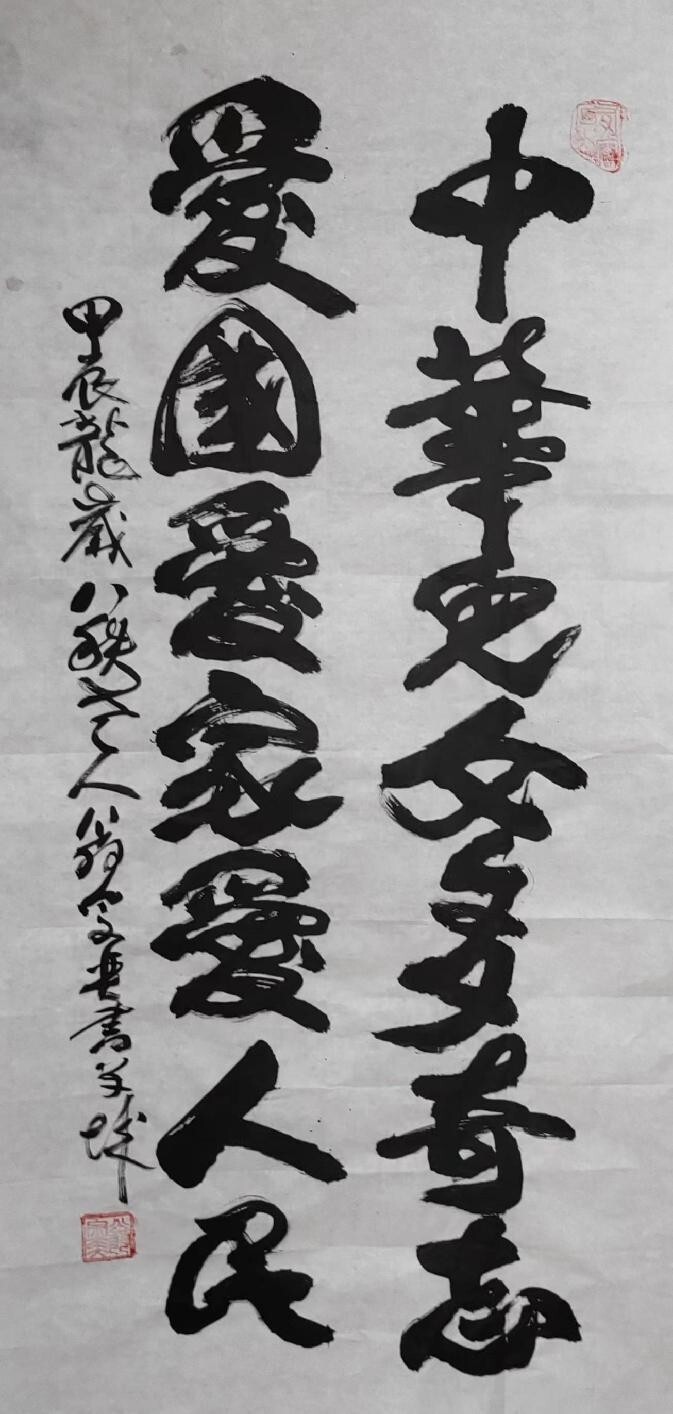 中華兒女多奇志
愛國愛家愛人民
甲辰龍歲八秩老人翁定典書於